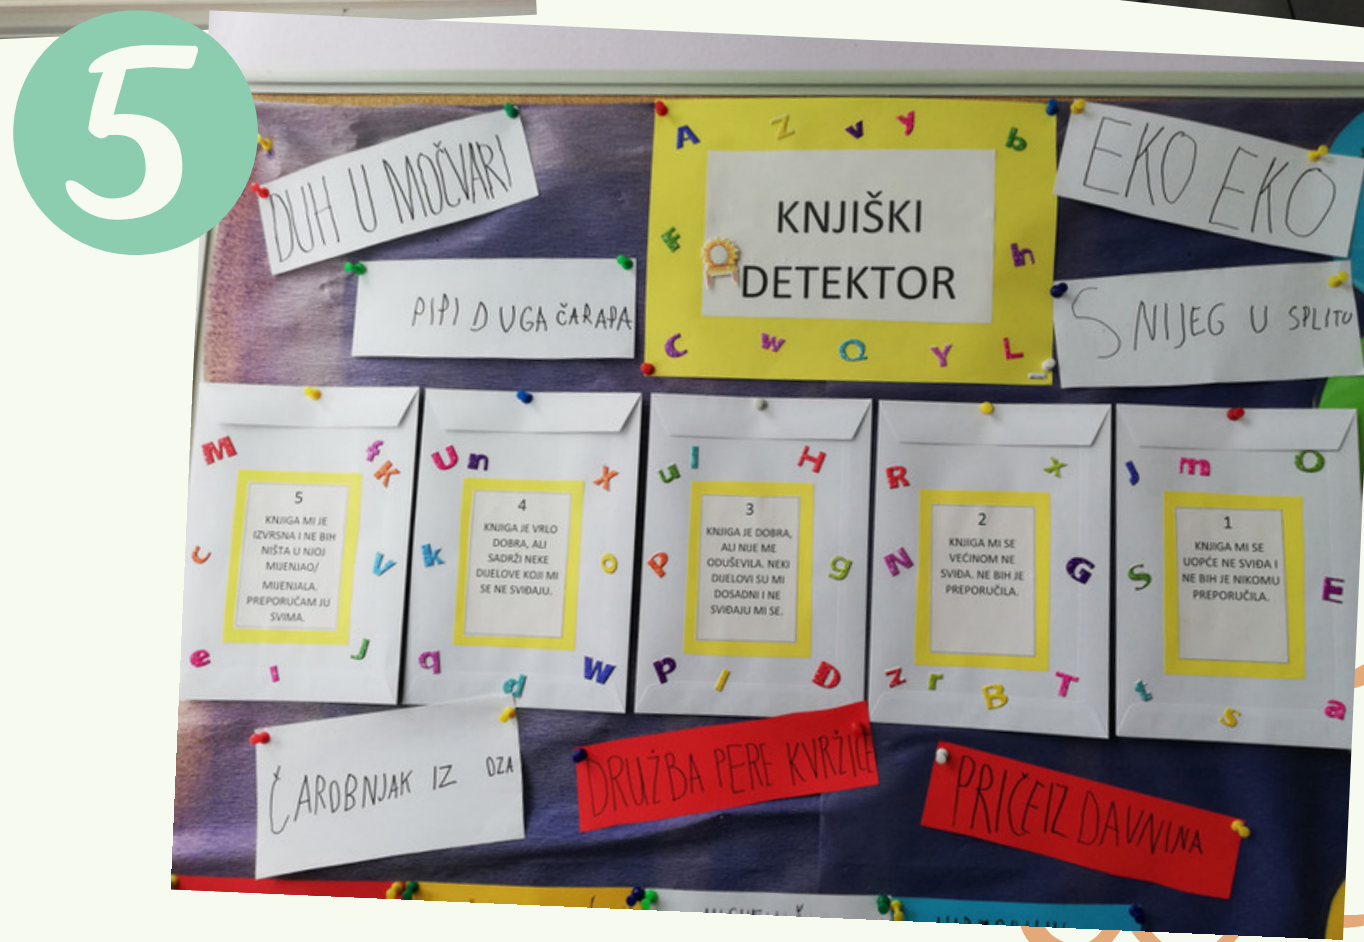 5
DUH U MOČVARI
PIPI DUGA ČARAPA
KNJIŠKI
DETEKTOR
EKO EKO
SNIJEG U SPLITU
5
KNJIGA MI JE
IZVRSNA I NE BIH
NIŠTA U NJOJ
MIJENJAO/
MIJENJALA.
PREPORUČAM JU
SVIMA.
4
KNJIGA JE VRLO
DOBRA, ALI
SADRŽI NEKE
DIJELOVE KOJI MI
SE NE SVIĐAJU.
3
KNJIGA JE DOBRA,
ALI NIJE ME
ODUŠEVILA. NEKI
DIJELOVI SU MI
DOSADNI I NE
SVIĐAJU MI SE.
2
KNJIGA MI SE
VEĆINOM NE
SVIĐA. NE BIH JE
PREPORUČILA.
1
KNJIGA MI SE
UOPĆE NE SVIĐA I
NE BIH JE NIKOMU
PREPORUČILA.
ČAROBNJAK IZ OZA
DRUŽBA PERE KVRŽICE
PRIČE IZ DAVNINA